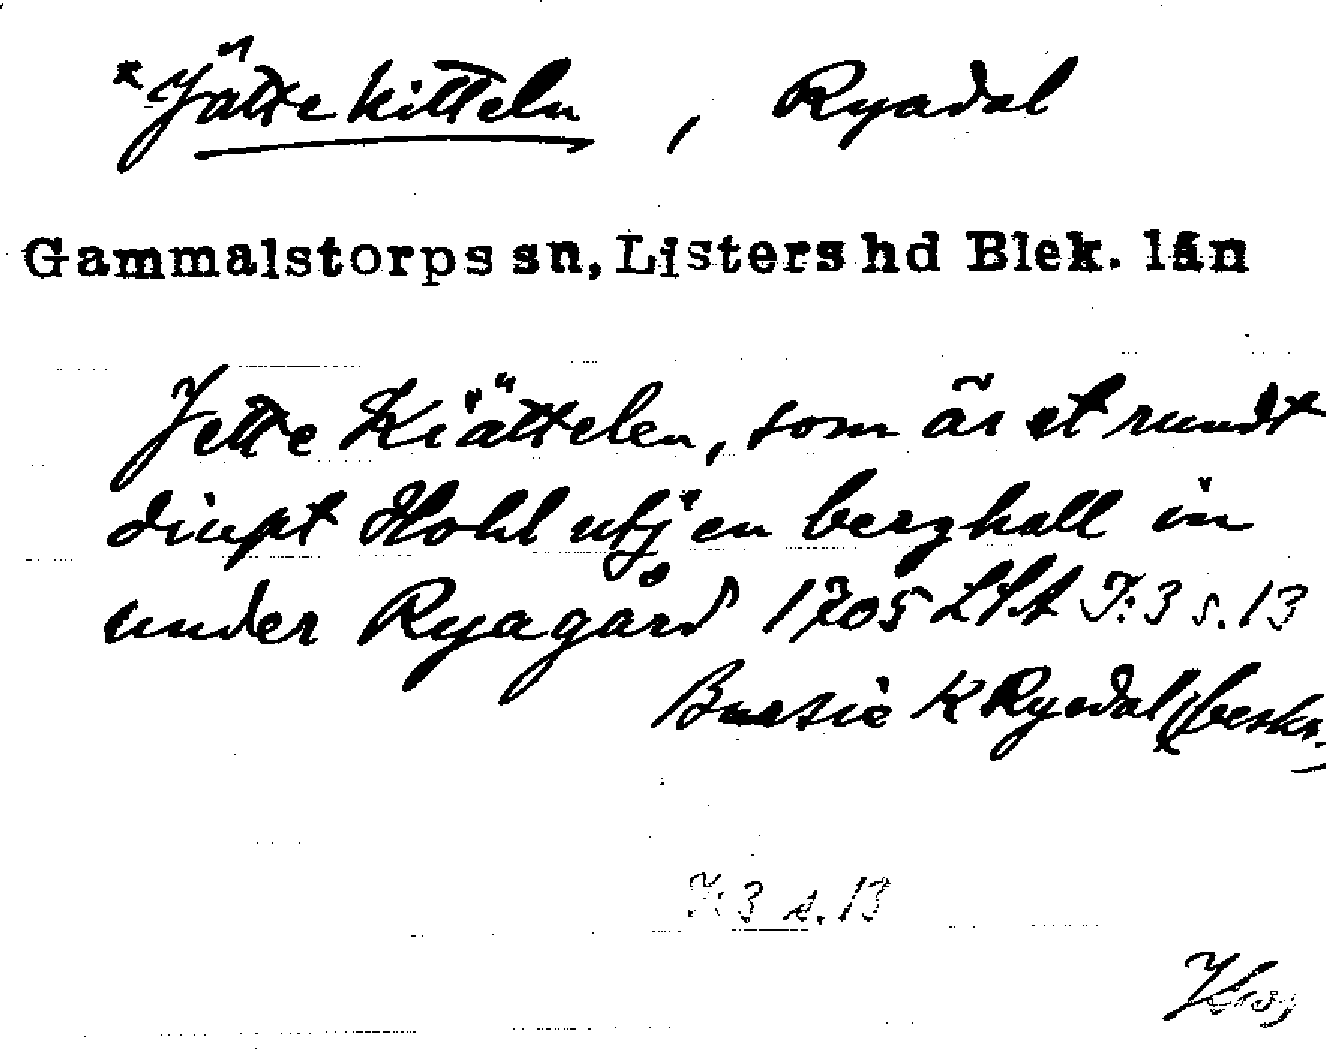 *Jättekitteln, Ryadal
Gammalstorps sn, Listers hd Blek. län
Jette Kiättelen, som är et rundt
diupt Hohl utj en berghall in
under Ryagård 1705 LSA I:3 s. 13
K Ryedal (beskr.)
I:3 s. 13